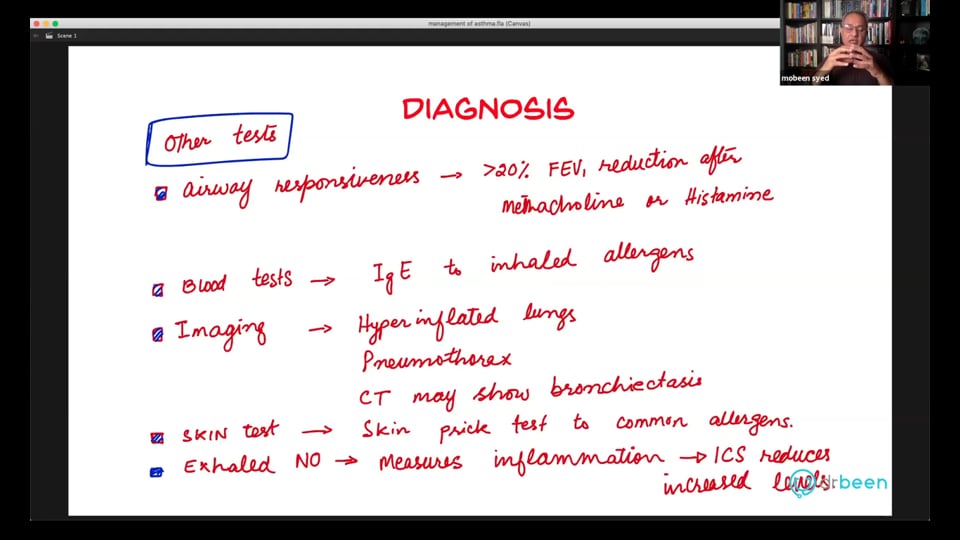 management of asthma.fla (Canvas)
Scene 1
mobeen syed
DIAGNOSIS
Other tests
Airway responsiveness → >20% FEV₁ reduction after
Methacholine or Histamine
Blood tests → IgE to inhaled allergens
Imaging → Hyperinflated lungs
Pneumothorax
CT may show bronchiectasis
SKIN test → Skin prick test to common allergens.
Exhaled NO → Measures inflammation → ICS reduces
increased levels.
drbeen